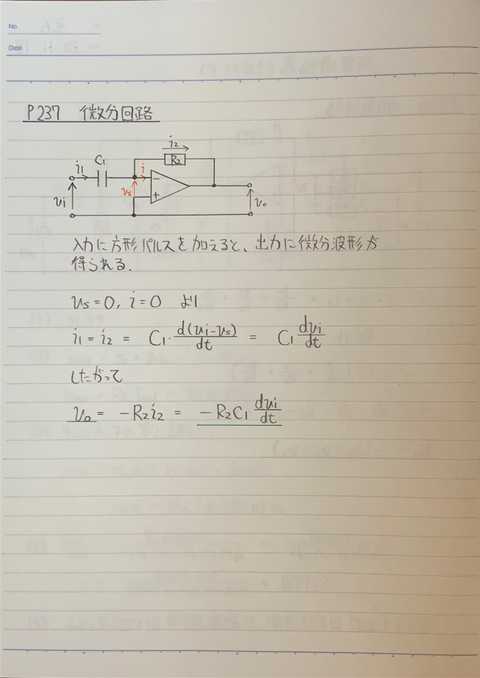 No.
Date
P237 微分回路
i₂
i₁ C₁ i R₂
vi vs − + vo
入力に方形パルスを加えると、出力に微分波形が
得られる.
vs=0, i=0 より
i₁ = i₂ = C₁・d(vi-vs)/dt = C₁ dvi/dt
したがって
vo = -R₂i₂ = -R₂C₁ dvi/dt